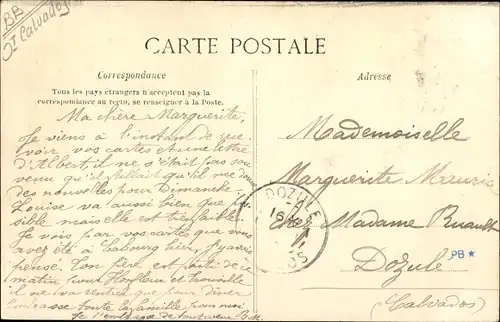 BB
Calvados
CARTE POSTALE
Correspondance
Adresse
Tous les pays étrangers n'acceptent pas la
correspondance au recto, se renseigner à la Poste.
Ma chère Marguerite,
Je viens à l'instant de rece-
voir vos cartes et une lettre
d'Albert, il ne s'était pas sou
venu qu'il fallait qu'il me donne
des nouvelles pour Dimanche.
Louise va aussi bien que pos
sible mais elle est très faible.
Je vois par vos cartes que vous
avez été à Cabourg hier, j'y avais
pensé. Ton père est parti de ce
matin pour Honfleur et Trouville
il ne va rentrer que pour dîner
toute la famille,
Mademoiselle
Marguerite Maurice
Chez Madame Ruault
Dozulé
(Calvados)
DOZULE
PB *